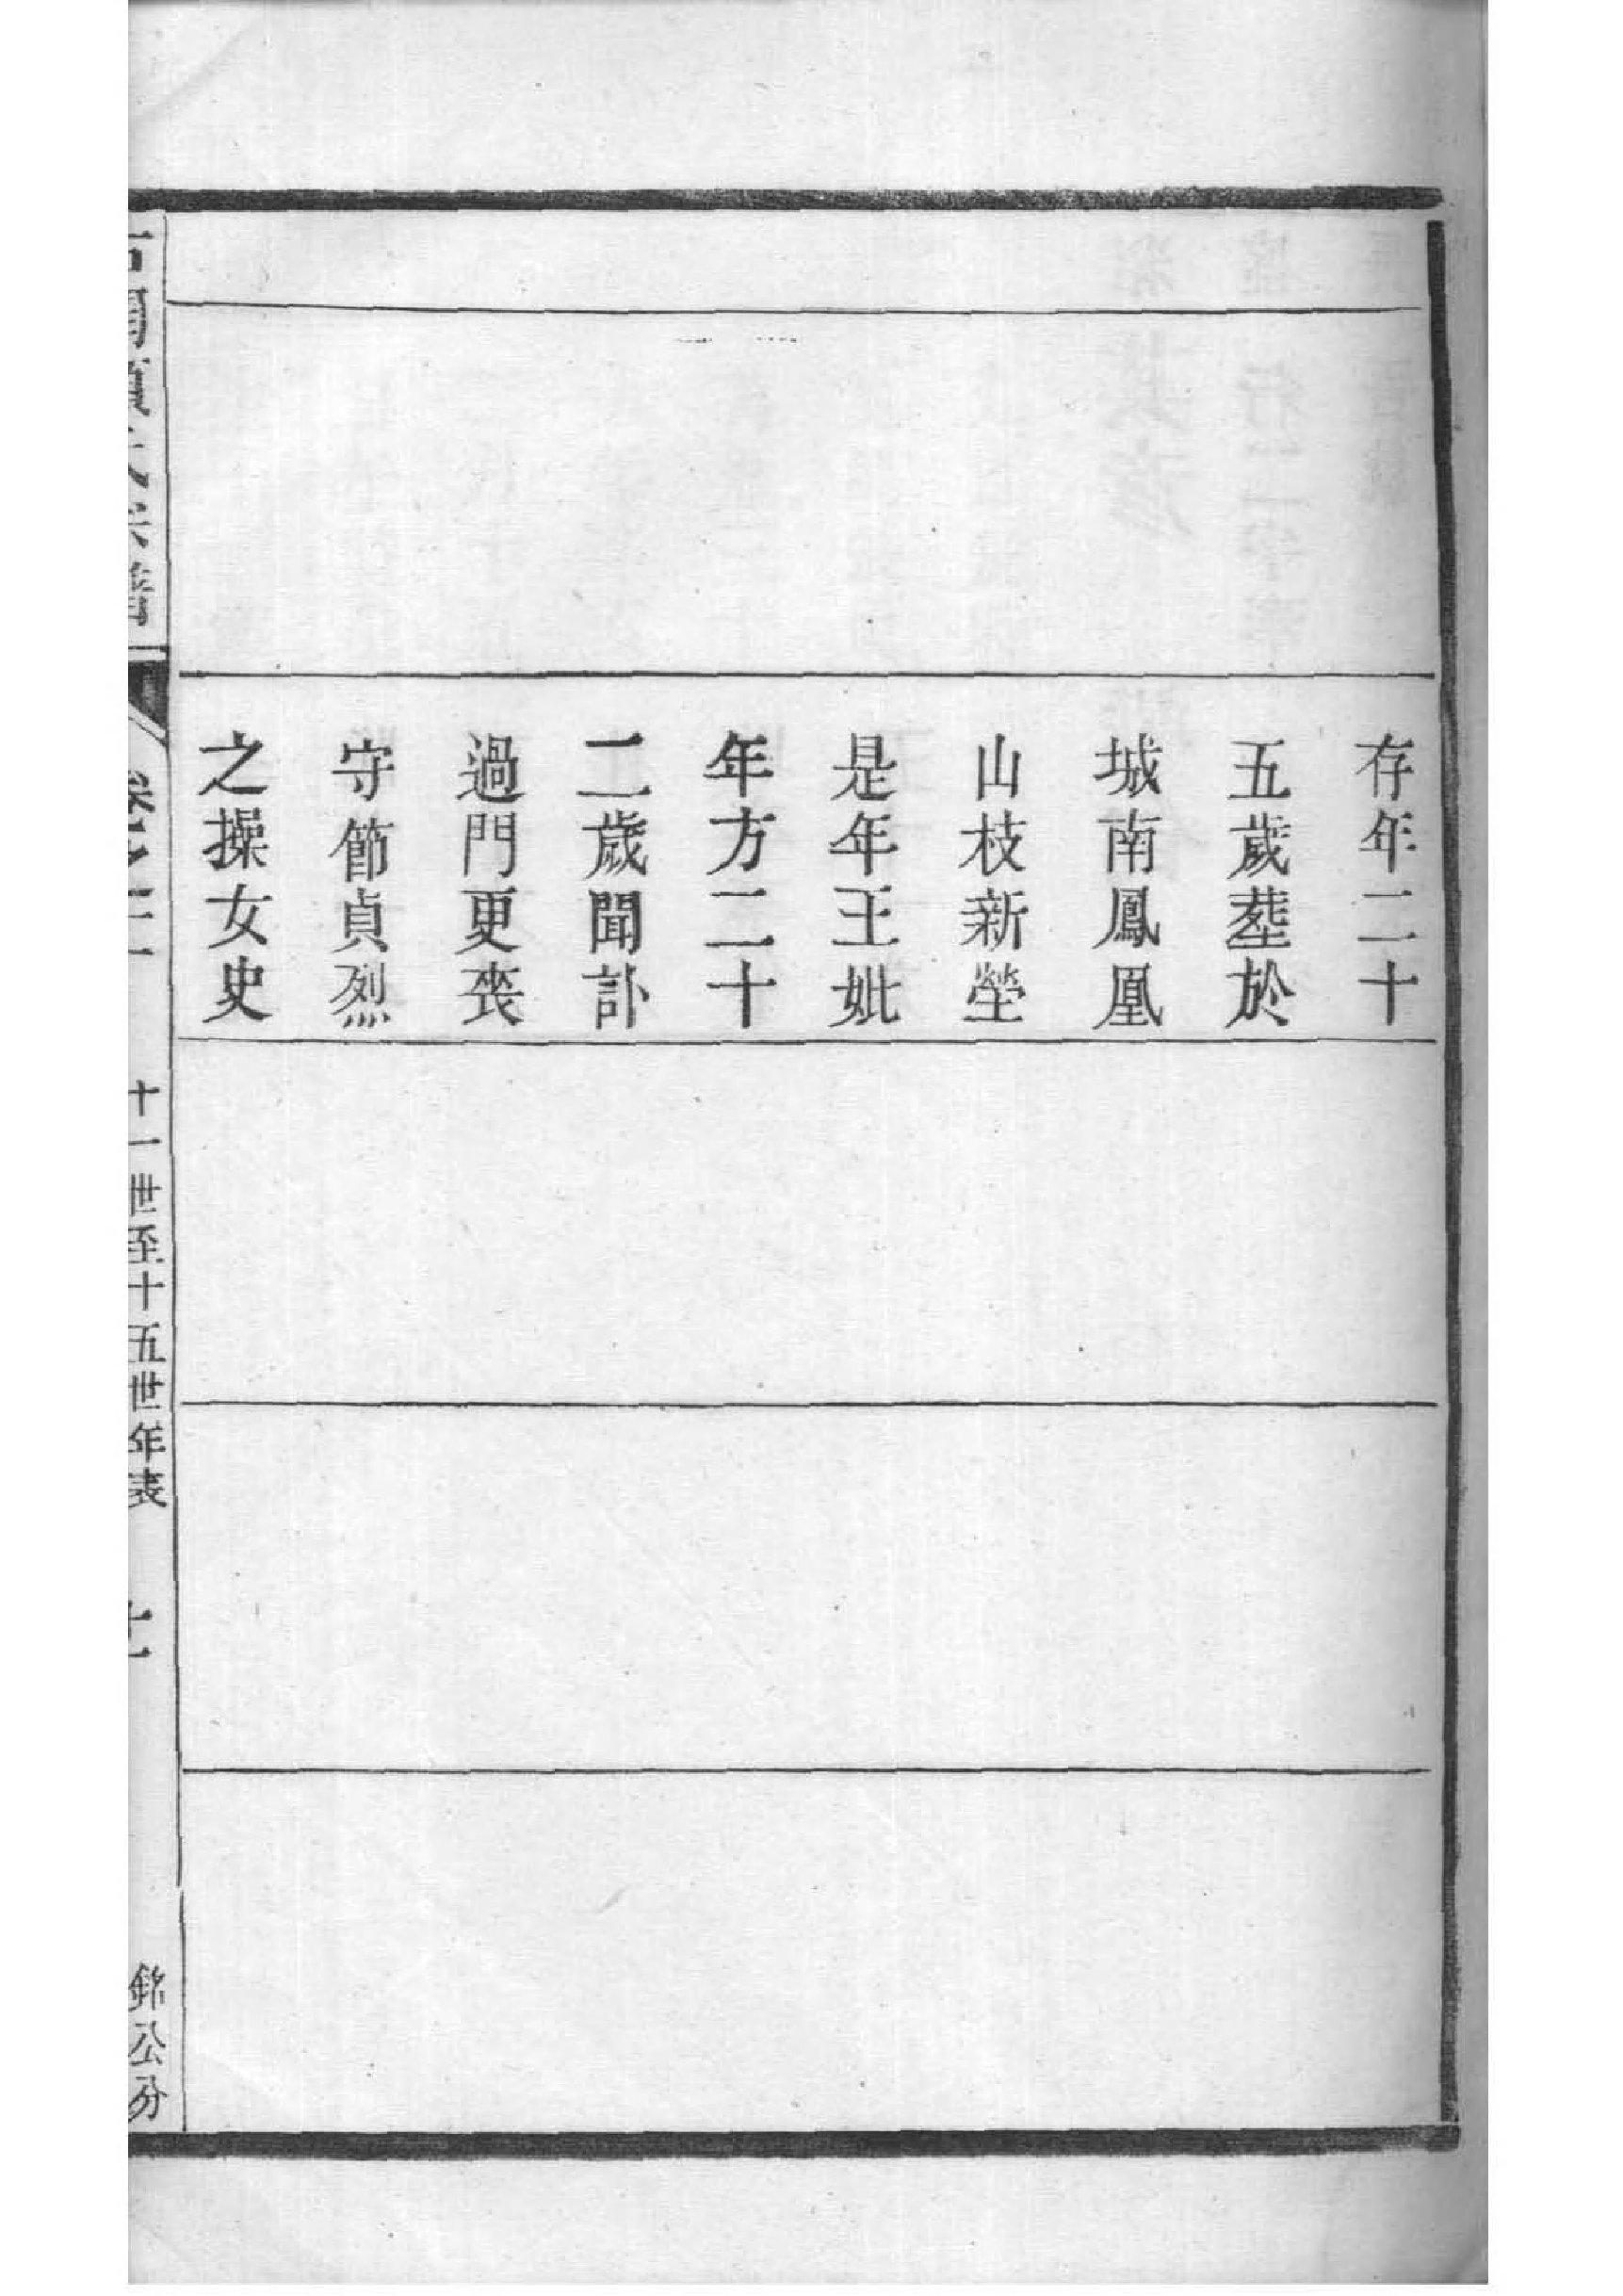 存年二十
五歲塟於
城南鳳凰
山枝新塋
是年王妣
年方二十
二歲聞訃
過門更喪
守節貞烈
之操女史
十一世至十五世年表
十一
銘公分